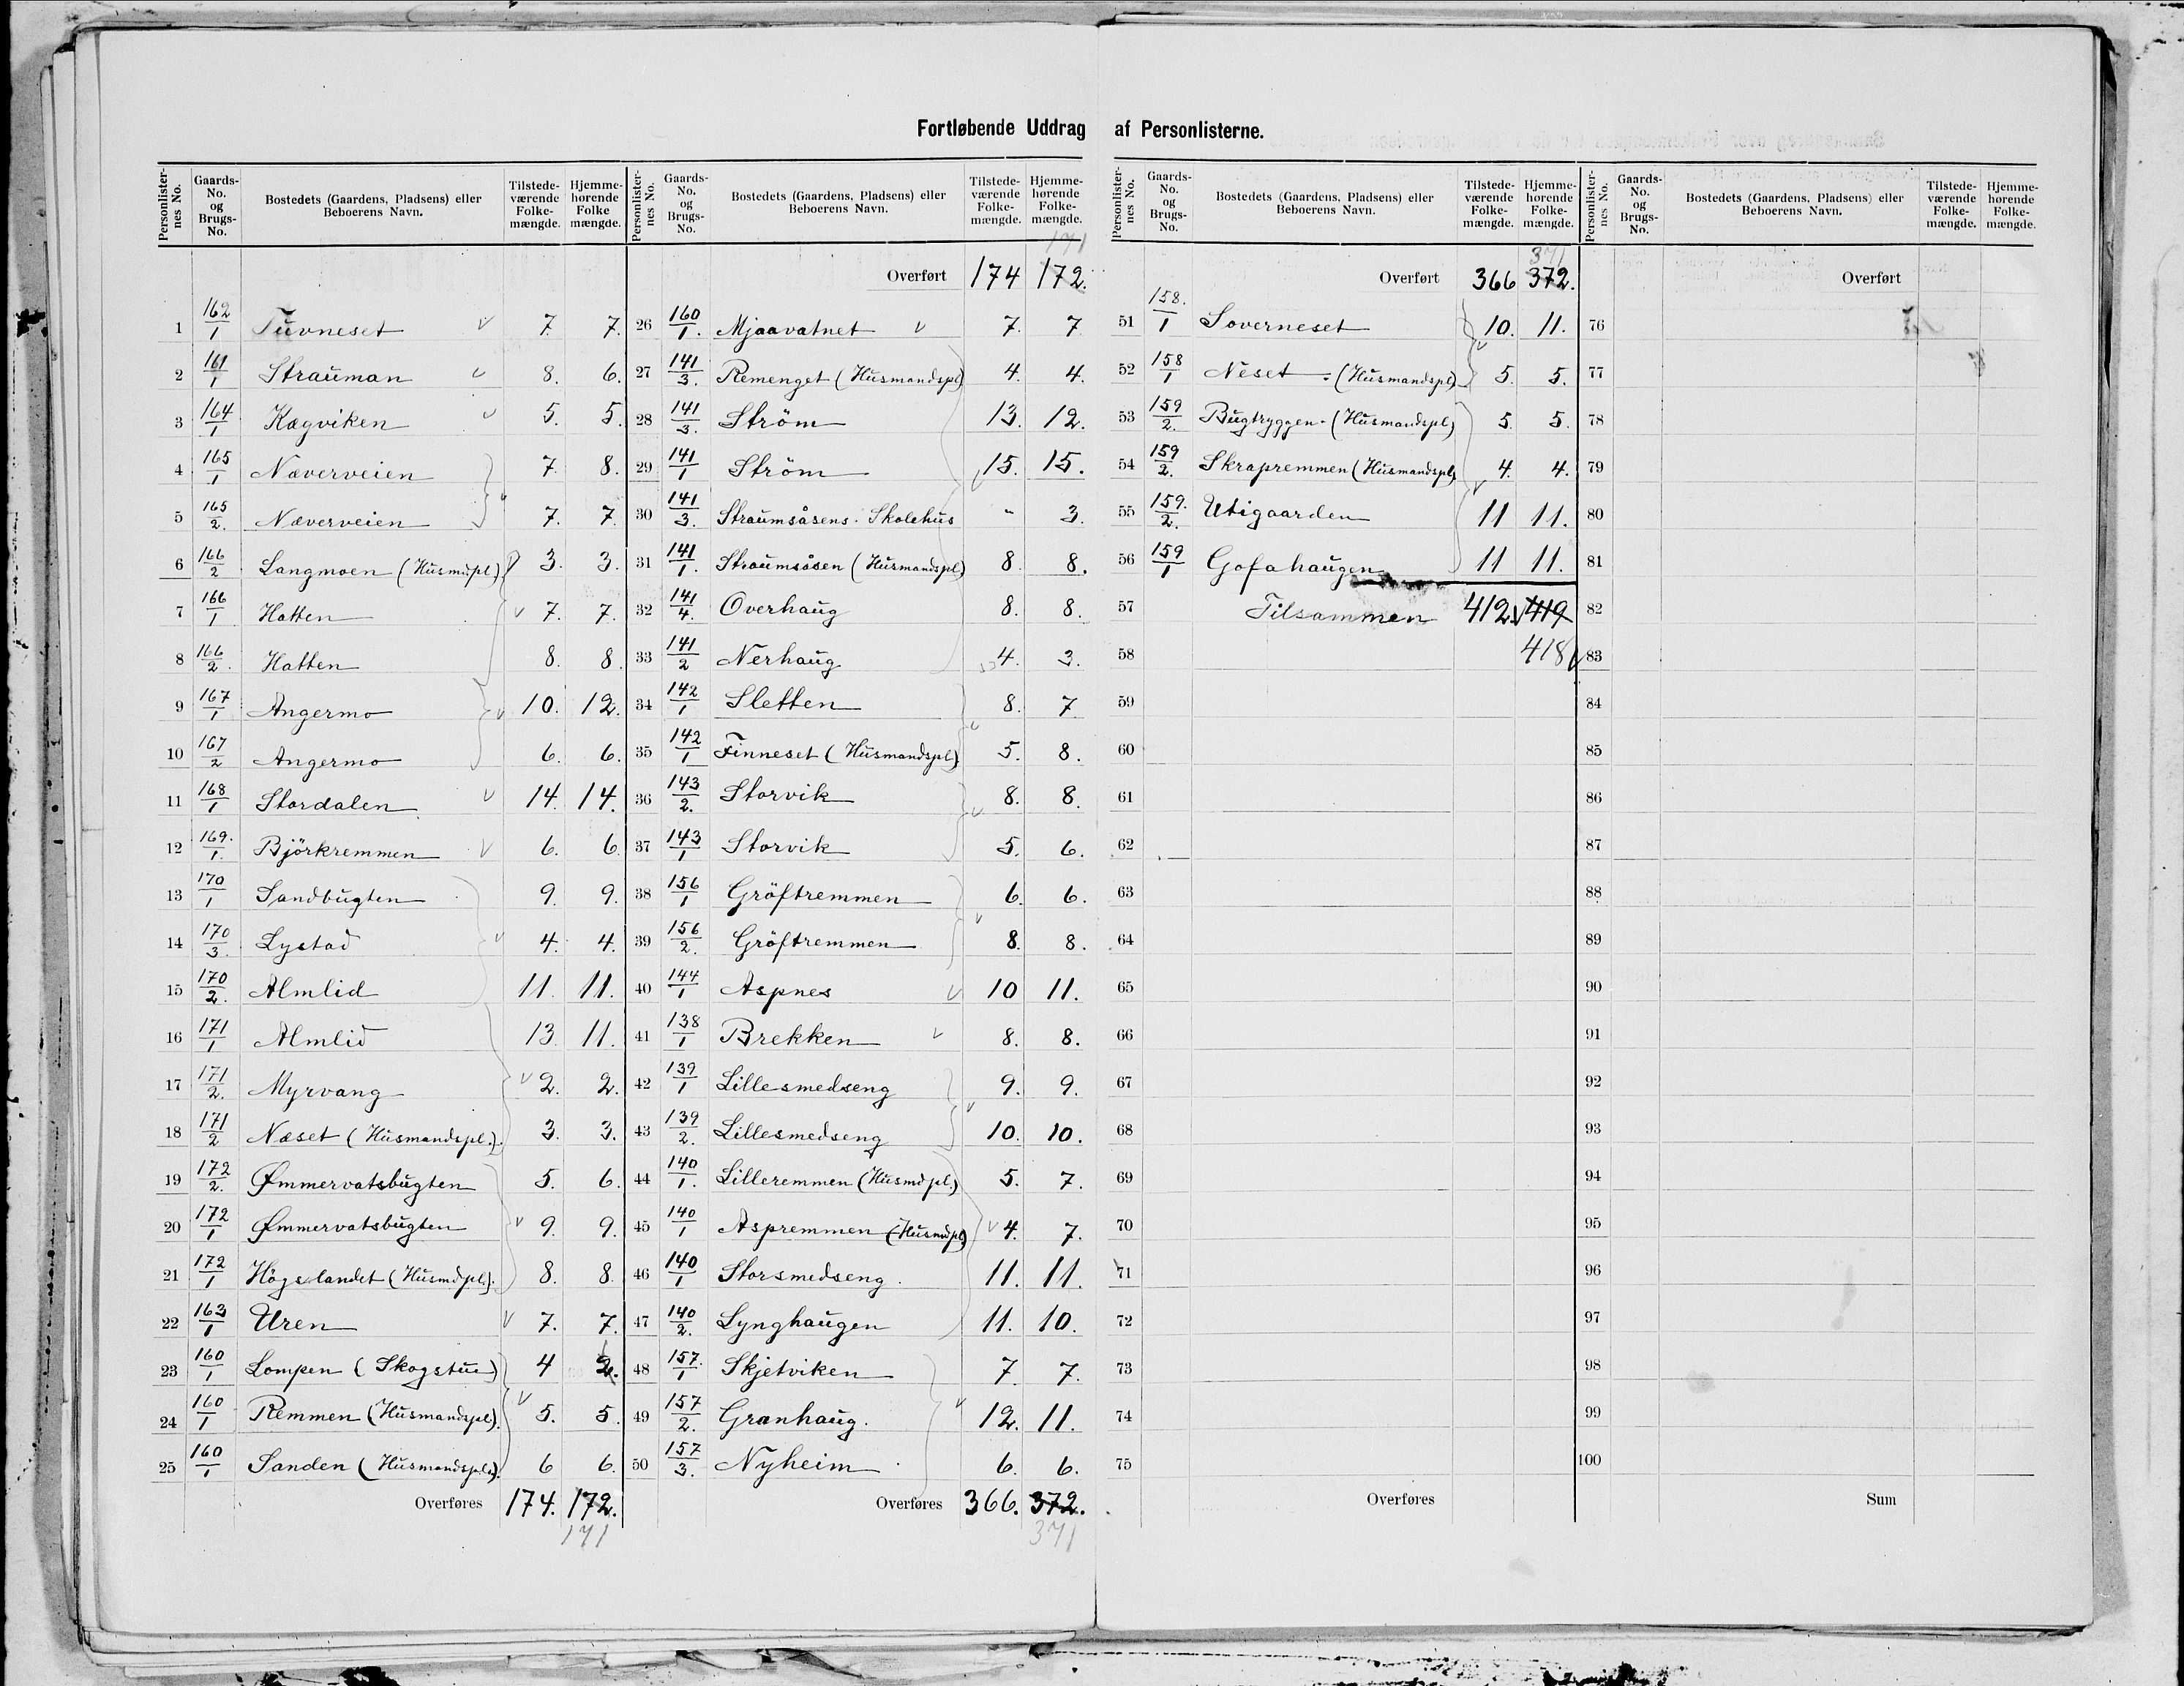 Fortløbende Uddrag af Personlisterne.
Personlister-nes No. | Gaards-No. og Brugs-No. | Bostedets (Gaardens, Pladsens) eller Beboerens Navn. | Tilstede-værende Folke-mængde. | Hjemme-hørende Folke mængde.
1 162/1 Tuvneset v 7. 7.
2 161/1 Strauman v 8. 6.
3 164/1 Kægviken v 5. 5.
4 165/1 Næverveien 7. 8.
5 165/2. Næverveien 7. 7.
6 166/2 Langmoen (Husmdpl.) 3. 3.
7 166/1 Hatten v 7. 7.
8 166/2. Hatten 8. 8.
9 167/1 Angermo v 10. 12.
10 167/2 Angermo 6. 6.
11 168/1 Stordalen v 14. 14.
12 169./1. Björkremmen v 6. 6.
13 170/1 Sandbugten 9. 9.
14 170/3. Lystad v 4. 4.
15 170/2. Almlid 11. 11.
16 171/1 Almlid 13. 11.
17 171/2. Myrvang v 2. 2.
18 171/2 Næset (Husmandspl.). 3. 3.
19 172/2. Ømmervatsbugten 5. 6.
20 172/1 Ømmervatsbugten v 9. 9.
21 172/1 Högslandet (Husmdpl.). 8. 8.
22 163/1 Uren v 7. 7.
23 160/1 Lompen (Skogstue) 4 2.
24 160/1 Remmen (Husmandspl). v 5. 5.
25 160/1 Sanden (Husmandspl.). 6 6.
Overføres 174. 172.
171
Personlister-nes No. | Gaards-No. og Brugs-No. | Bostedets (Gaardens, Pladsens) eller Beboerens Navn. | Tilstede-værende Folke-mængde. | Hjemme-hørende Folke-mængde.
171
Overført 174 172.
26 160/1. Mjaavatnet v 7. 7
27 141/3. Remenget (Husmandspl) 4. 4.
28 141/3. Ström 13. 12.
29 141/1 Ström 15. 15.
30 141/3. Straumsåsens Skolehus " 3.
31 141/1. Straumsåsen (Husmandspl) 8. 8.
32 141/4. Overhaug 8. 8.
33 141/2 Nerhaug 4. 3.
34 142/1 Sletten 8. 7.
35 142/1 Finneset (Husmandspl.) 5. 8.
36 143/2. Storvik 8. 8.
37 143/1 Storvik 5. 6.
38 156/1 Gröftremmen 6. 6.
39 156/2. Gröftremmen 8. 8.
40 144/1 Aspnes v 10 11.
41 138/1 Brekken v 8. 8.
42 139/1 Lillesmedseng 9. 9.
43 139/2. Lillesmedseng 10. 10.
44 140/1. Lilleremmen (Husmdpl.) 5. 7.
45 140/1 Aspremmen (Husmdpl.) v 4. 7.
46 140/1 Storsmedseng. 11. 11.
47 140/2. Lynghaugen 11. 10.
48 157./1 Skjetviken 7. 7.
49 157/2. Granhaug. v 12. 11.
50 157/3. Nyheim 6. 6.
Overføres 366. 372.
371
Personlister-nes No. | Gaards-No. og Brugs-No. | Bostedets (Gaardens, Pladsens) eller Beboerens Navn. | Tilstede-værende Folke-mængde. | Hjemme-hørende Folke-mængde.
371
Overført 366 372.
51 158./1 Soverneset 10. 11.
52 158/1 Neset (Husmandspl.) 5. 5.
53 159/2. Bugtryggen (Husmandspl.) 5. 5.
54 159/2. Skrapremmen (Husmandspl.) 4. 4.
55 159./2. Utigaarden 11 11.
56 159/1 Gofahaugen 11 11.
57 Tilsammen 412. 419
58 418
59
60
61
62
63
64
65
66
67
68
69
70
71
72
73
74
75
Overføres
Personlister-nes No. | Gaards-No. og Brugs-No. | Bostedets (Gaardens, Pladsens) eller Beboerens Navn. | Tilstede-værende Folke-mængde. | Hjemme-hørende Folke-mængde.
Overført
76
77
78
79
80
81
82
83
84
85
86
87
88
89
90
91
92
93
94
95
96
97
98
99
100
Sum